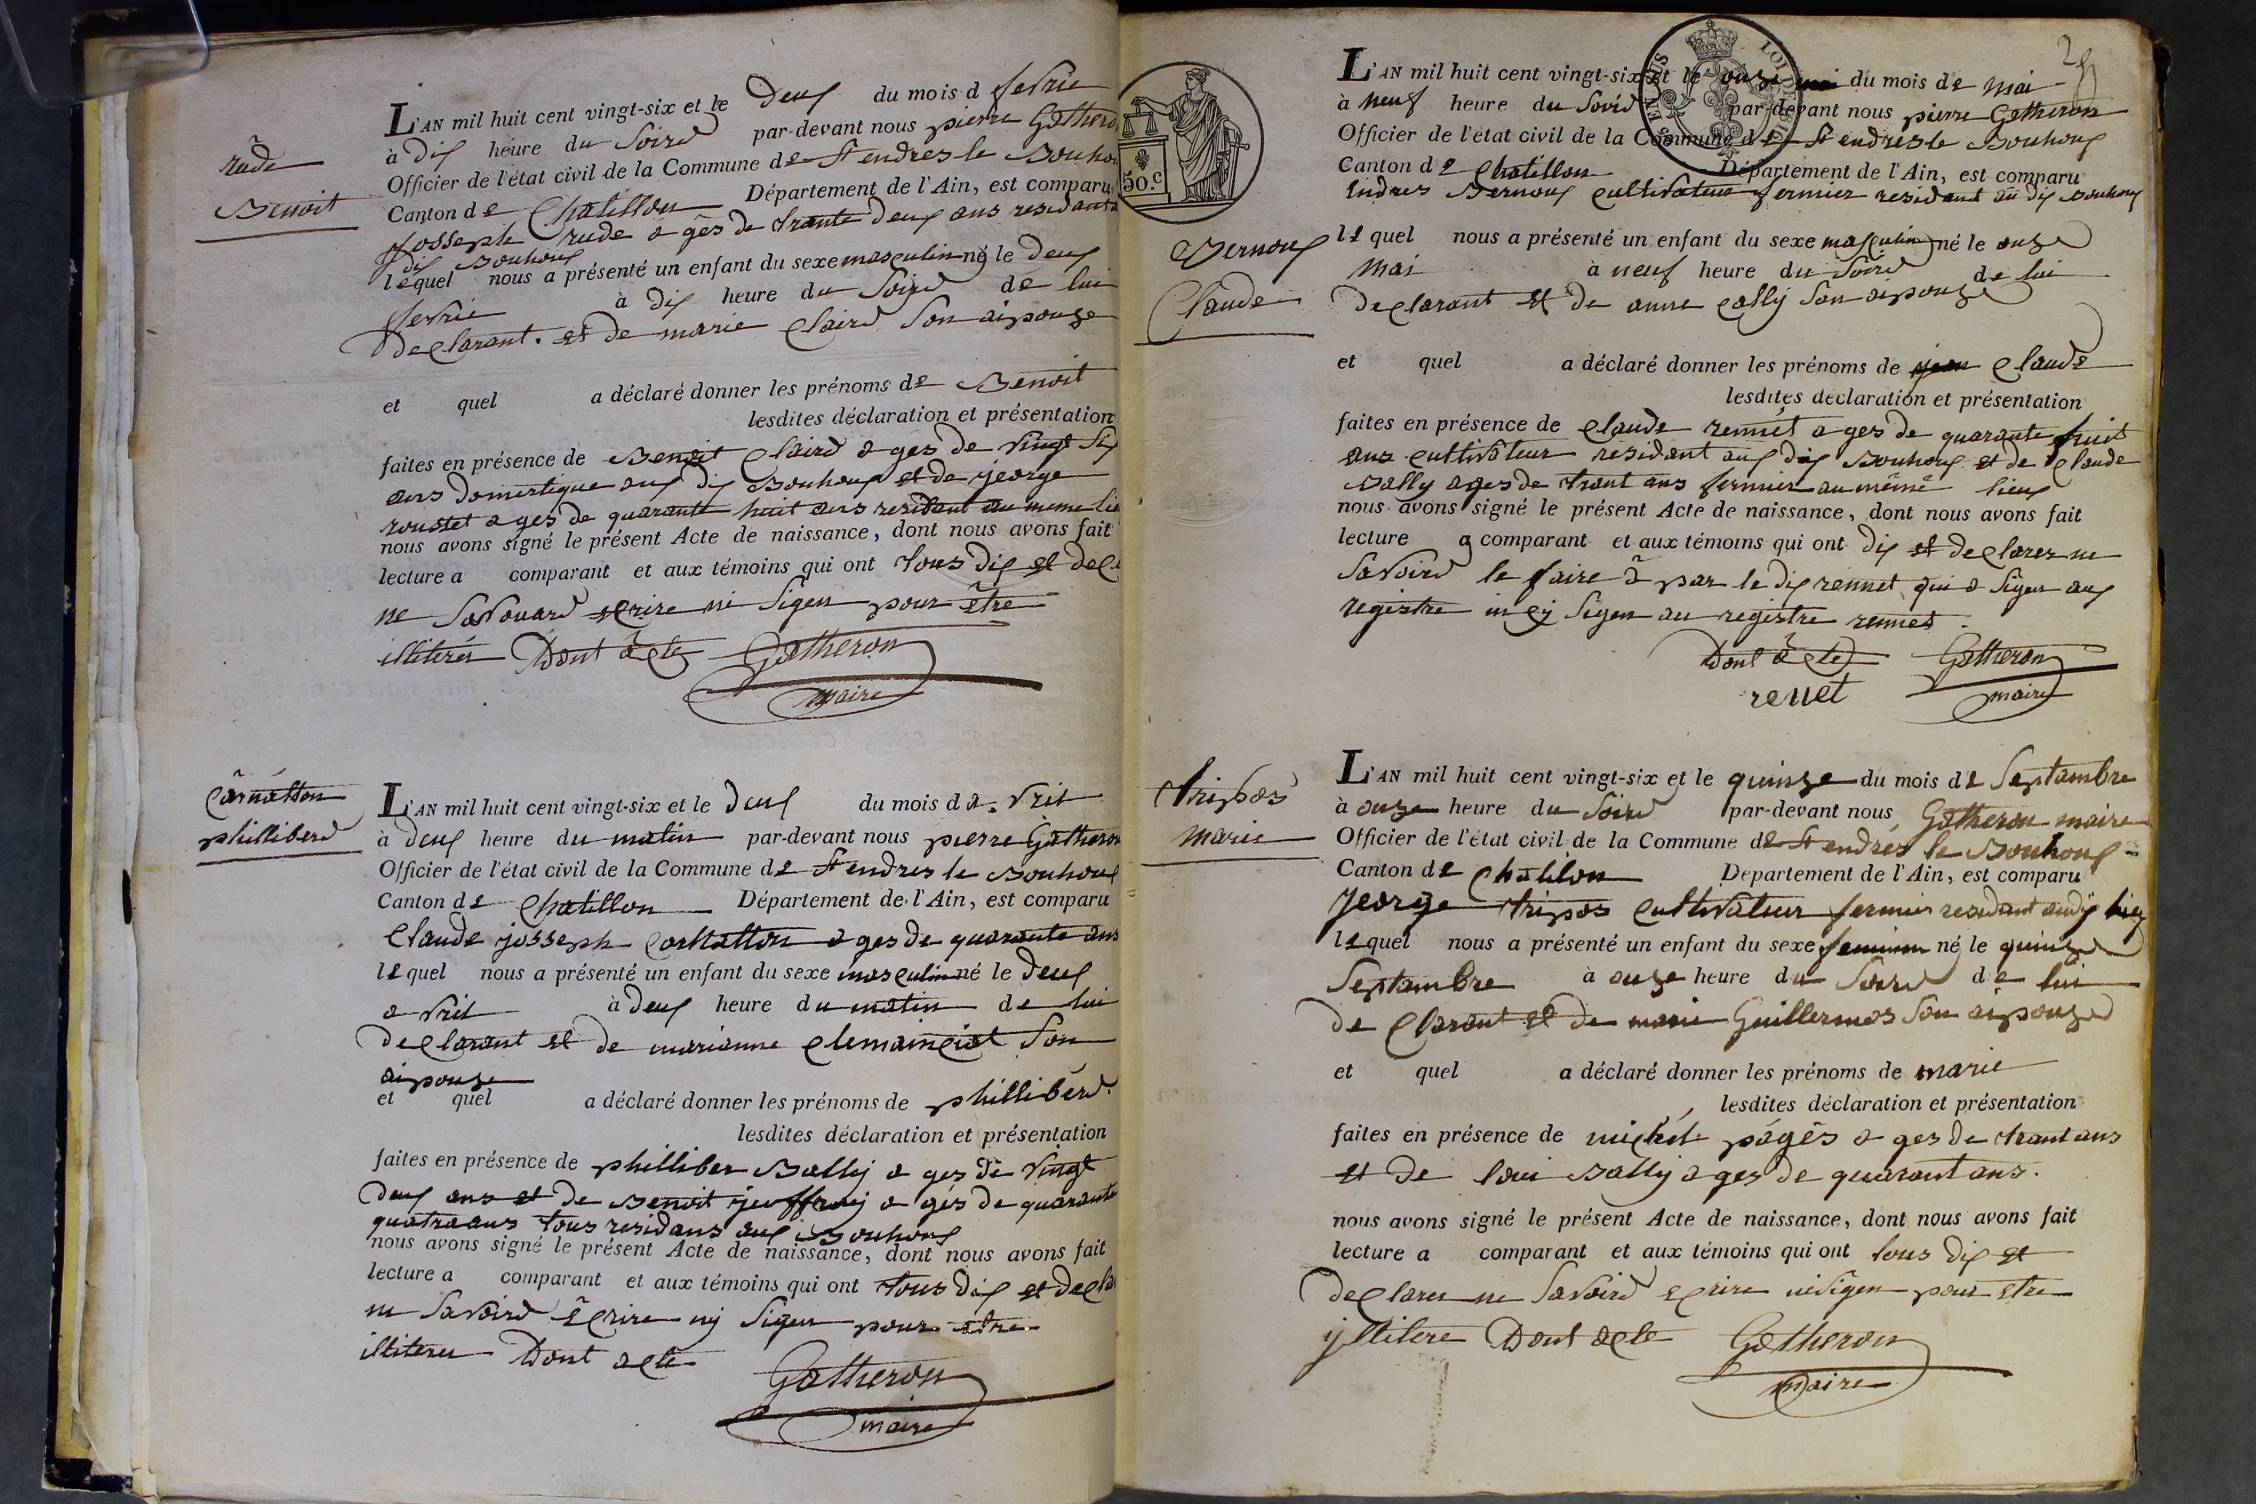 rude
Benoit
L'AN mil huit cent vingt-six et le Deux du mois d fevrie
à Dix heure du Soird par-devant nous pierre Gatheron
Officier de l'état civil de la Commune de St endres le Bouhoux
Canton de Chatillon Département de l'Ain, est comparu
Josseph rude a gés de trante Deux ans residant a
dix Bouhoux
lequel nous a présenté un enfant du sexe masculin né le Deux
fevrie à Dix heure du Soird de lui
Declarant. et de marie Claird Son aipouze
et quel a déclaré donner les prénoms de Benoit
lesdites déclaration et présentation
faites en présence de Benoit Claird a ges de vingt Six
ans Domestique aux dix Bouhoux et de george
roustet a ges de quarante huit ans residant au meme lie
nous avons signé le présent Acte de naissance, dont nous avons fait
lecture a comparant et aux témoins qui ont tous Dix et Decl
ne Savouard ecrire ni Sigen pour être
illiterés Dont acte Gatheron
maire
philliberd
L'AN mil huit cent vingt-six et le Deux du mois d a. vril
à Deux heure du matin par-devant nous pierre Gatheron
Officier de l'état civil de la Commune de St endres le Bouhoux
Canton de Chatillon Département de l'Ain, est comparu
Claude josseph a ges de quarante ans
lequel nous a présenté un enfant du sexe masculin né le Deux
a vril à Deux heure du matin de lui
Declarant et de marianne Clemainciat Son
aipouze
et quel a déclaré donner les prénoms de philliberd.
lesdites déclaration et présentation
faites en présence de philliber Bally a ges de vingt
Deux ans et de Benoit jeuffray a gés de quarante
quatra ans tous residans aux Bouhoux
nous avons signé le présent Acte de naissance, dont nous avons fait
lecture a comparant et aux témoins qui ont tous Dix et Decla
ne Savoird écrire nÿ Sigen pour etre
illiteres Dont acte
Gatheron
maire
50.c
LOI DE
25
Bernoux
Claude
L'AN mil huit cent vingt-six et le onze mai du mois de mai
à neuf heure du Soird par-devant nous pierre Gatheron
Officier de l'état civil de la Commune de St endres le Bouhoux
Canton de Chatillon Département de l'Ain, est comparu
Endres Bernoux Cultivateur fermier residant au dix Bouhoux
lequel nous a présenté un enfant du sexe masculin né le onze
Mai à neuf heure du Soird de lui
Declarant et de anne Cally Son aipouze
et quel a déclaré donner les prénoms de jean Claude
lesdites déclaration et présentation
faites en présence de Claude rennet a ges de quarante huit
ans Cultivateur residant aux dix Bouhoux et de Claude
Bally ages de trant ans fermier au même lieux
nous avons signé le présent Acte de naissance, dont nous avons fait
lecture a comparant et aux témoins qui ont dix et Declares ne
Savoird le faire à par le dix rennet qui a Sigen aux
registre in cy Sigen au registre rennet.
Dont acte Gatheron
renet maire
tripos
marie
L'AN mil huit cent vingt-six et le quinze du mois de Septambre
à onze heure du Soird par-devant nous Gatheron maire
Officier de l'état civil de la Commune de St endrés le Bouhoux
Canton de Chatilon Département de l'Ain, est comparu
george tripos Cultivateur fermier residant audix lieu
lequel nous a présenté un enfant du sexe feminin né le quinze
Septambre à onze heure du Soird de lui
De Clarant et de marie Guillermos Son aipouze
et quel a déclaré donner les prénoms de marie
lesdites déclaration et présentation
faites en présence de michel pagés a ges de trant ans
et de loui Bally a ges de quarant ans.
nous avons signé le présent Acte de naissance, dont nous avons fait
lecture a comparant et aux témoins qui ont tous Dix et
Declares ne Savoird ecrire ni Sigen pour etre
ÿllitere Dont acte Gatheron
maire